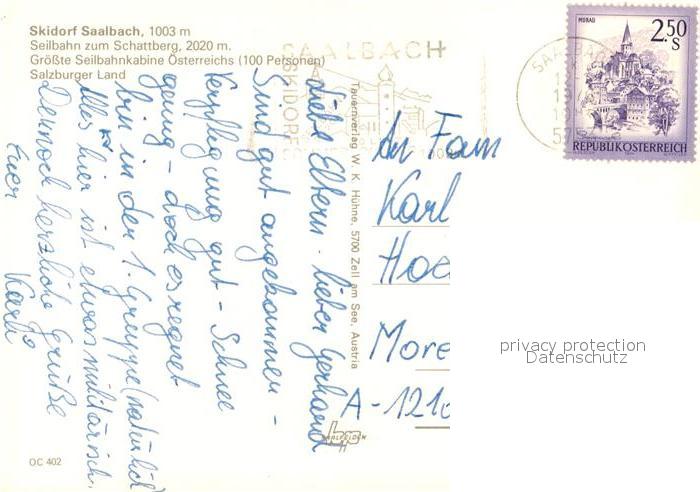 Skidorf Saalbach, 1003 m
Seilbahn zum Schattberg, 2020 m.
Größte Seilbahnkabine Österreichs (100 Personen)
Salzburger Land
SAALBACH
SKIDORF
MURAU
2.50
S
REPUBLIK ÖSTERREICH
SAALBACH
Liebe Eltern, lieber Gerhard
Sind gut angekommen -
Verpflegung gut - Schnee
genug - doch es regnet
bin in der 1. Gruppe (natürlich)
Alles hier ist etwas militärisch.
Dennoch herzliche Grüße
Euer
Karli
Tauernverlag W. K. Hühne, 5700 Zell am See, Austria
An Fam
Karl
Hoe
More
A-1210
OC 402
privacy protection
Datenschutz